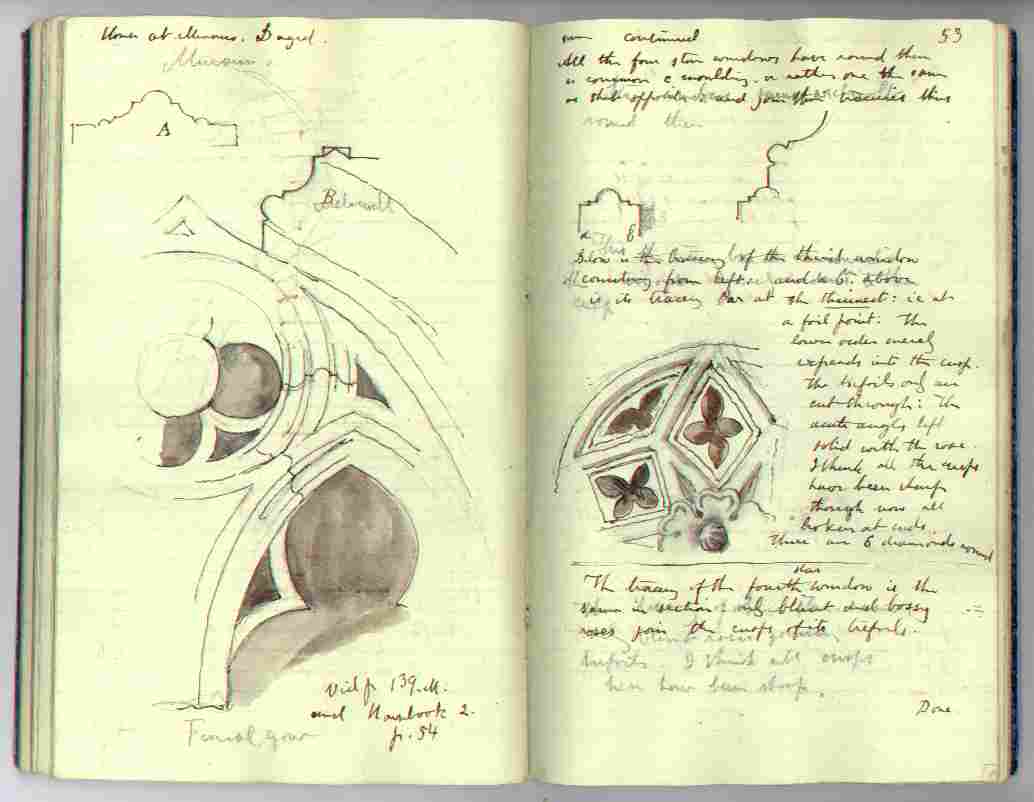 House at
Museum.
A
B
Vid p. 139. M.
and Housebook 2.
p. 54
Final, gone
continued 53
All the four star windows have round them
a common c moulding. or rather one the same
as that opposite and join their traceries thus
round them
a b
Below is the tracery of the third window
counting from left. and a b. above
is its tracery bar at the thinnest: ie at
a foil point: The
lower order merely
expands into the cusp.
The trefoils only are
cut through: The
acute angles left
solid with the rose.
I think all the cusps
have been sharp
though now all
broken at ends.
There are 6 diamonds round
star
The tracery of the fourth window is the
same in section: only blunt and bossy
roses join the cusps of its trefoils.
trefoils. I think all cusps
here have been sharp.
Done